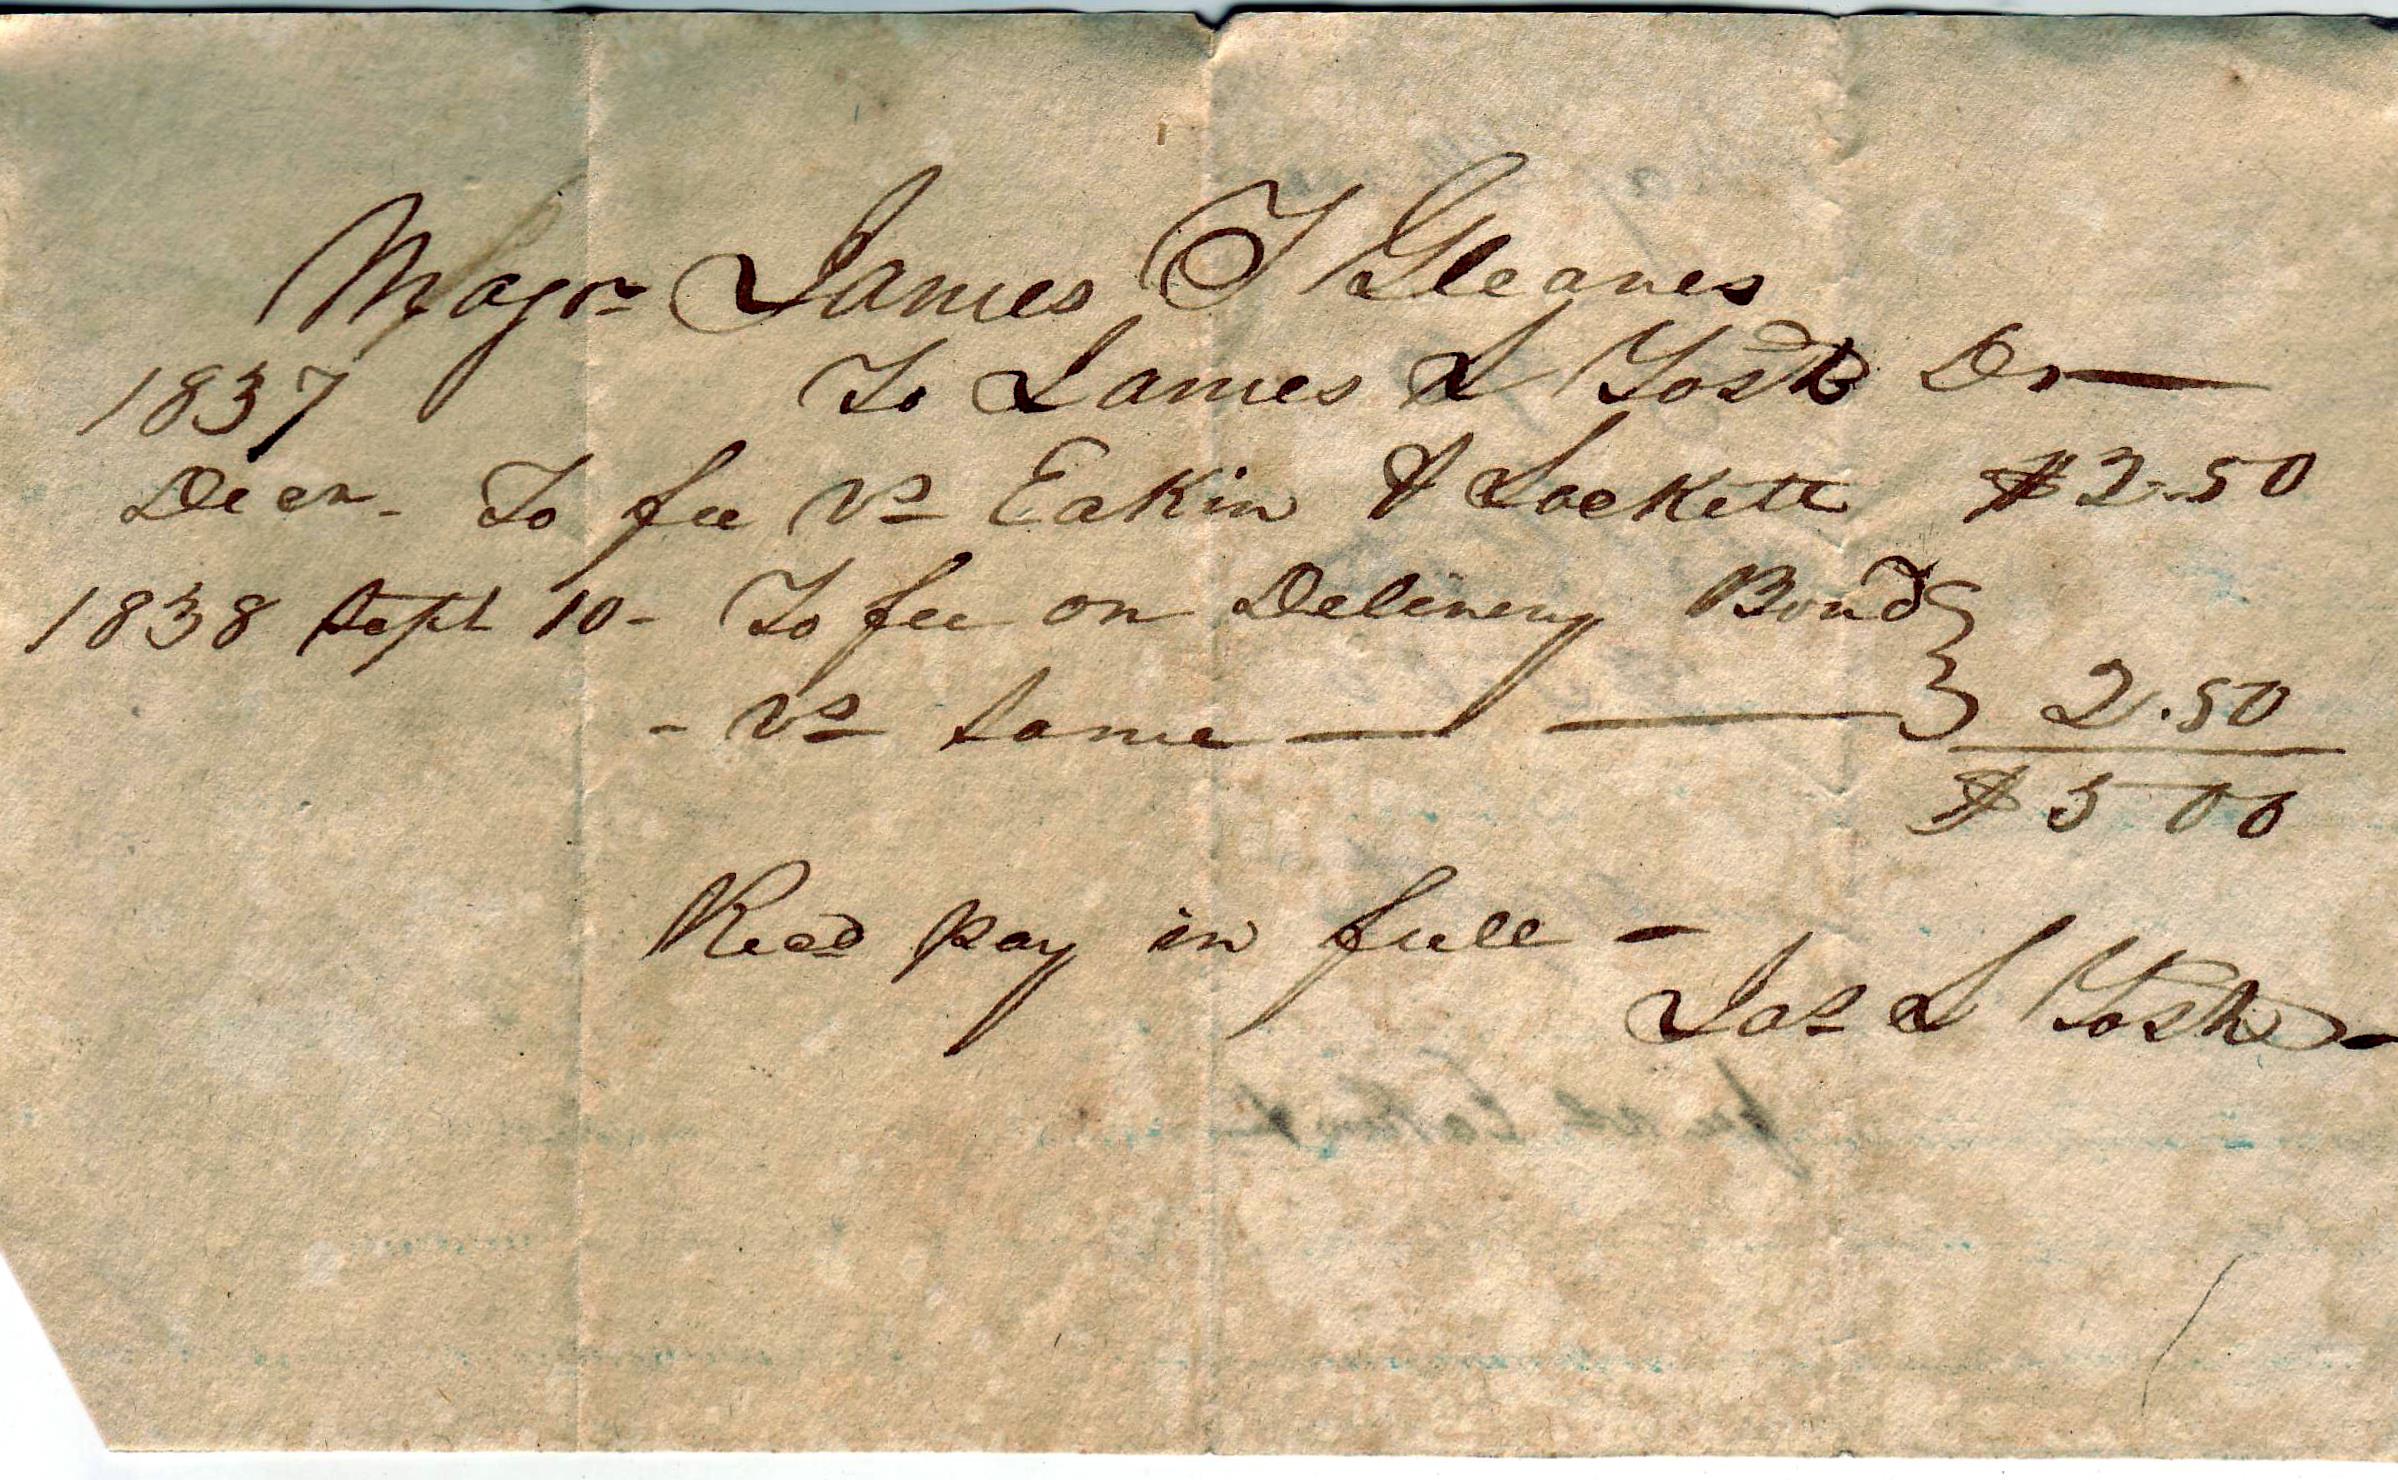 Majr James T Gleaves
1837 To James L Yost Dr
Decr - To fee vs Eakin & Lockett $2.50
1838 Sept 10 - To fee on Delivery Bond
- vs Same — — 2.50
$5 00
Recd pay in full -
Jas L Yost -